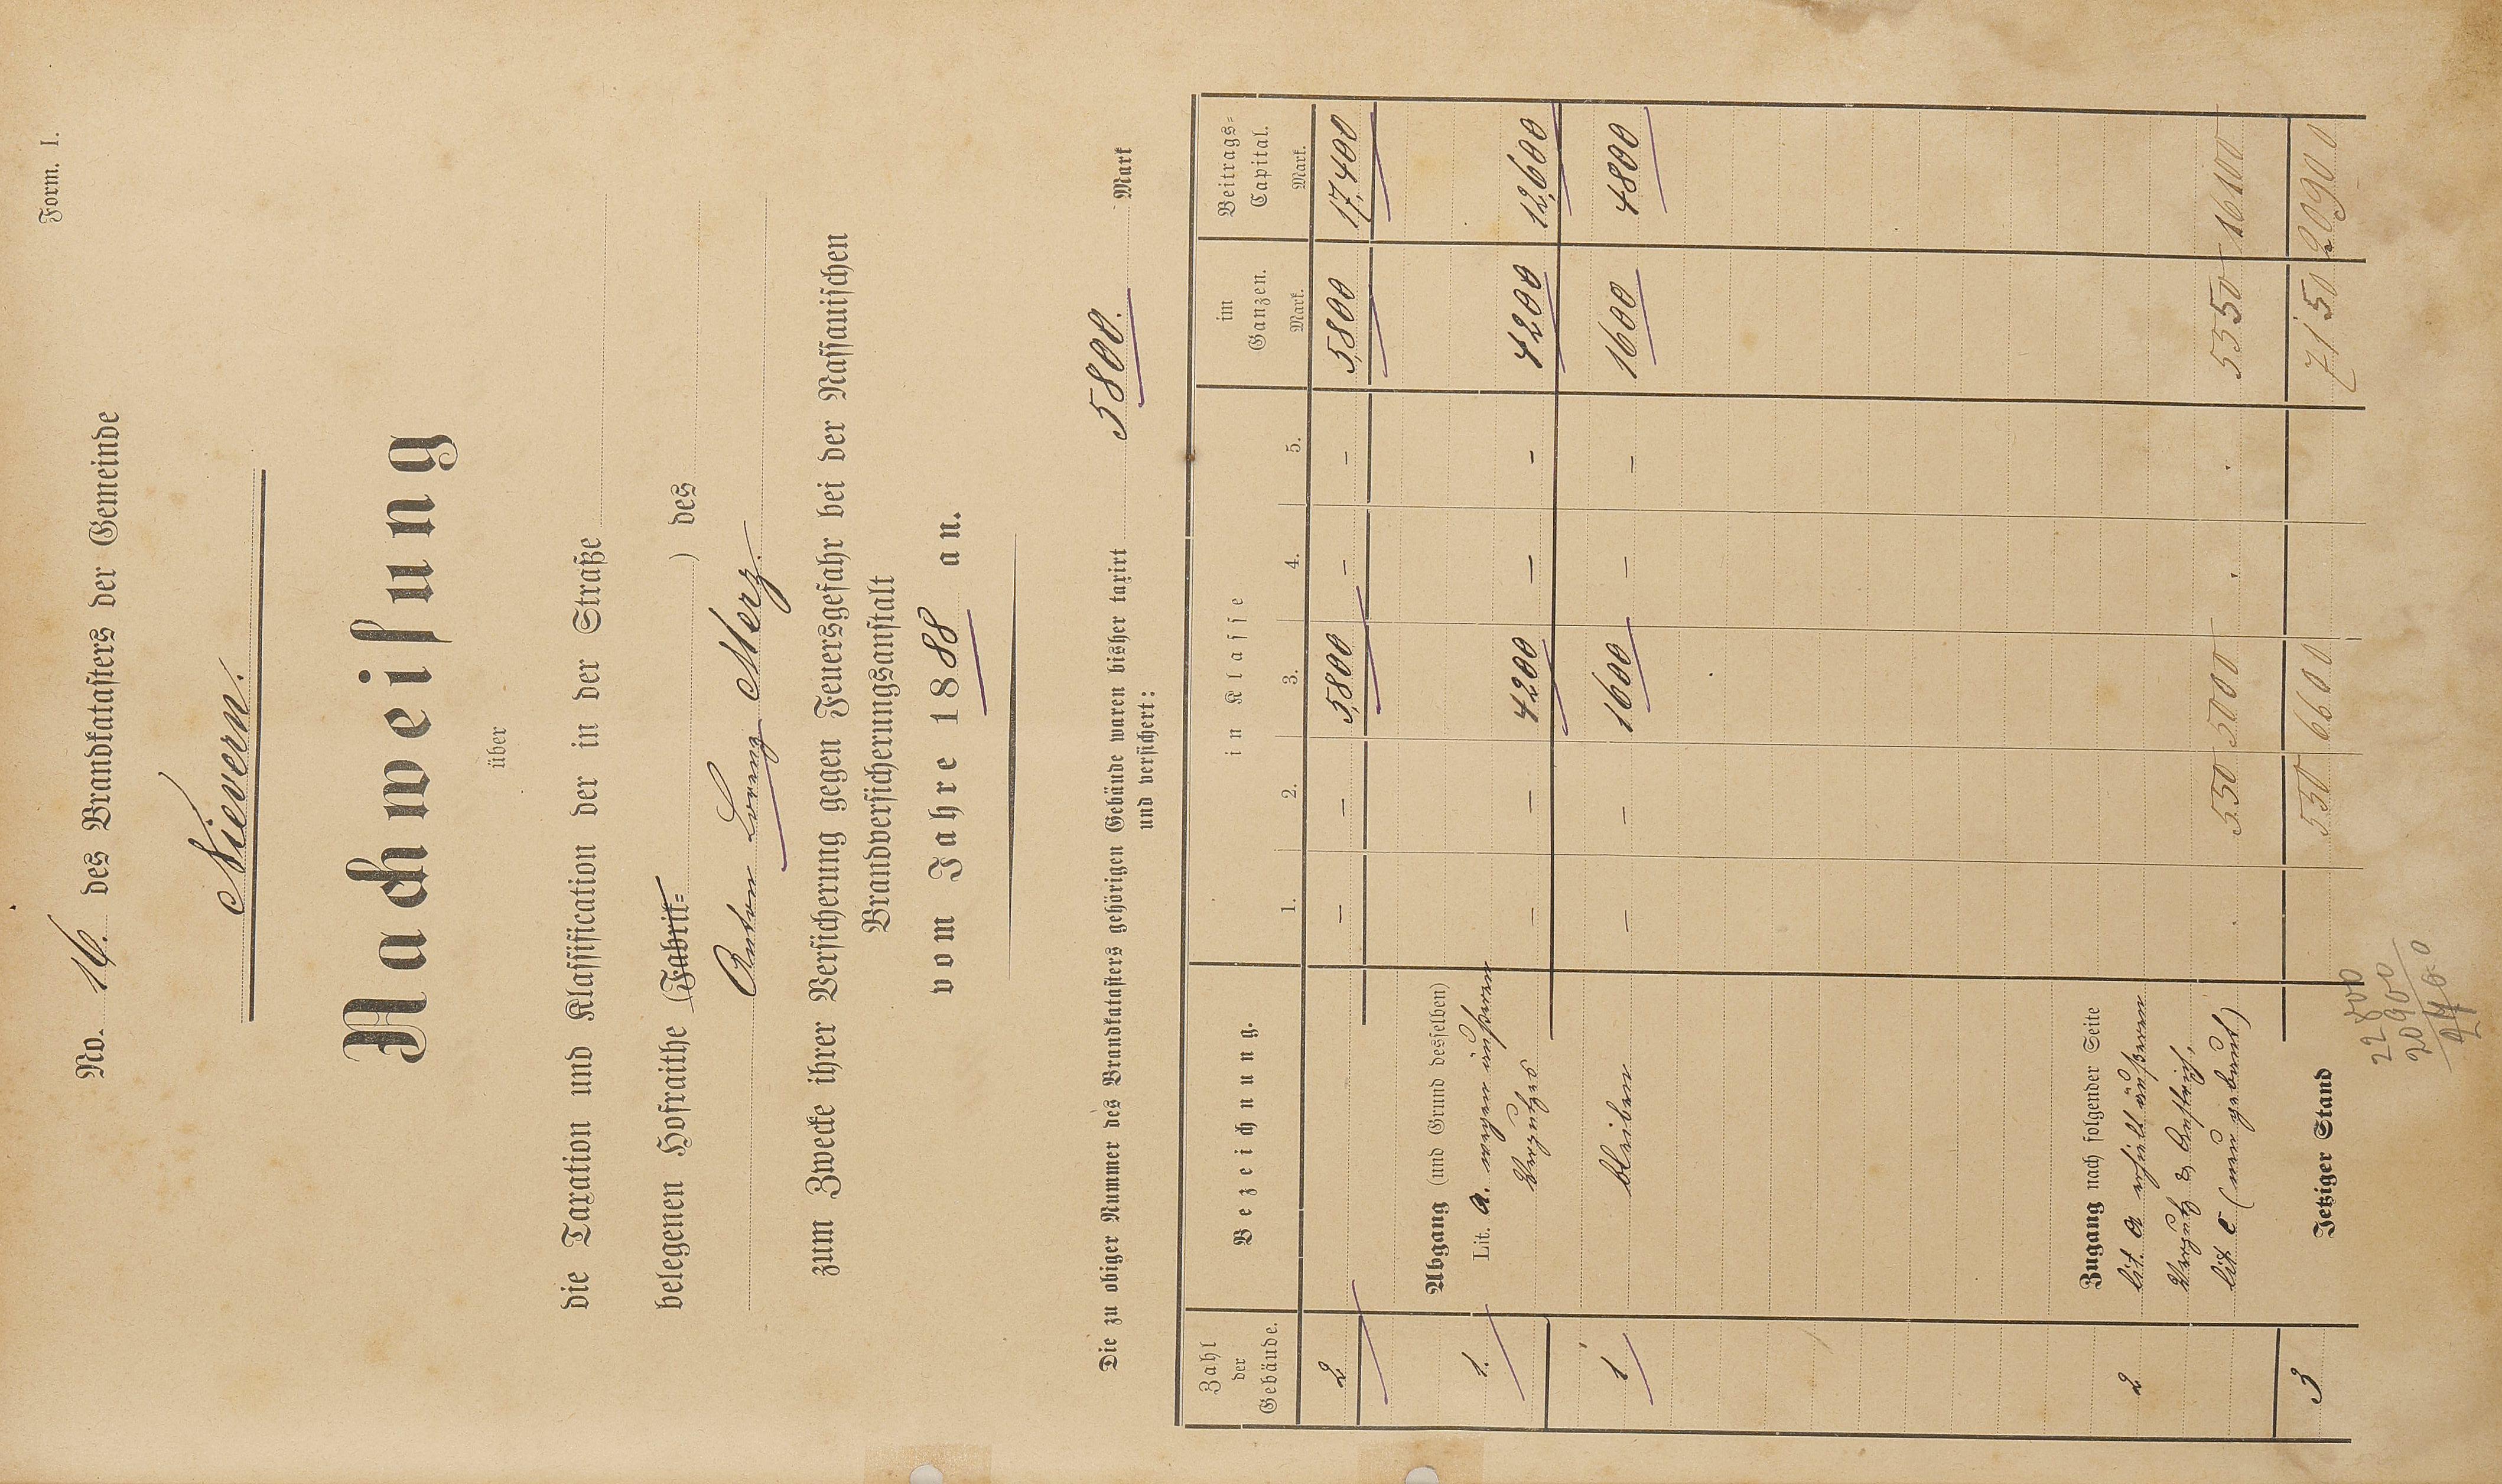 Form. I.
No. 16. des Brandkatasters der Gemeinde
Nievern.
Nachweisung
über
die Taxation und Klassification der in der Straße
belegenen Hofraithe (Fabrik= ) des
Anton Lorenz Sterz.
zum Zwecke ihrer Versicherung gegen Feuersgefahr bei der Nassauischen
Brandversicherungsanstalt
vom Jahre 1888 an.
Die zu obiger Nummer des Brandkatasters gehörigen Gebäude waren bisher taxirt 5800. Mark
und versichert:
Zahl der Gebäude. Bezeichnung. in Klasse im Ganzen. Beitrags= Capital.
1. 2. 3. 4. 5. Mark. Mark.
2 – – 5,800 – – 5,800 17,400
Abgang (und Grund desselben)
1. Lit. a. wegen äußeren
Verputzes – – 4200 – – 4200 12,600
1 bleiben – – 1600 – – 1600 4800
Zugang nach folgender Seite
2 lit. a erhielt äußeren
Verputz & Anstrich,
lit. c (neu gebaut) . 550 5000 . . 5550 16100
3 Jetziger Stand 550 6600 7150 20900
22800
20900